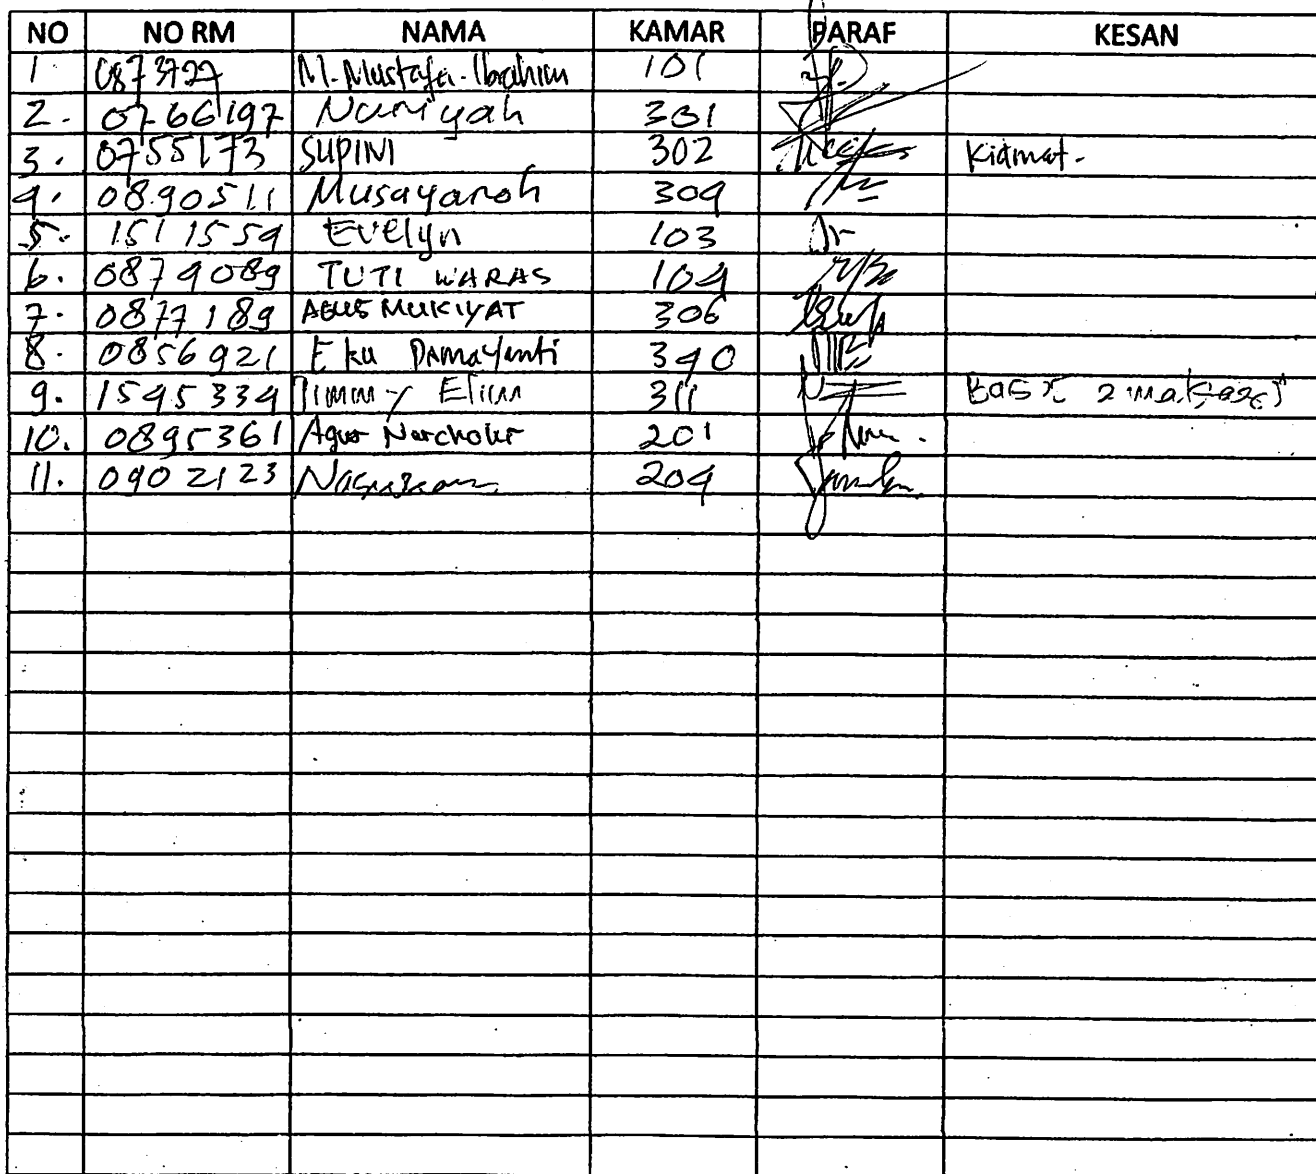 NO NO RM NAMA KAMAR PARAF KESAN
1 M. Mustafa. Ibrahim 101
2. 0766197 Nuriyah 301
3. 0755173 SUPINI 302 Kidmat.
4. 0890511 Musayaroh 304
5. 1511554 Evelyn 103
6. 0879089 TUTI WARAS 104
7. 0877189 AGUS MUKIYAT 306
8. 0856921 Eka Damayanti 340
9. 1545334 311
10. 0895361 Agus 201
11. 0902123 204